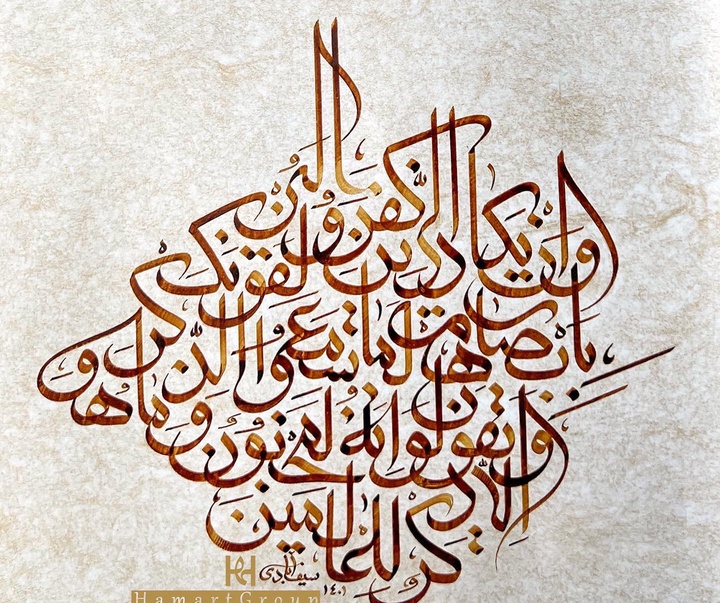 وان يكاد الذين كفروا ليزلقونك
بابصارهم لما سمعوا الذكر
ويقولون انه لمجنون وما هو
الا ذكر للعالمين
۱۴۰۱
HamartGroup